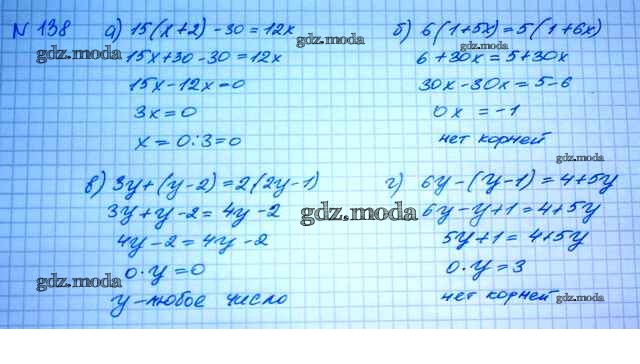 № 138 а) 15(x+2)-30=12x
15x+30-30=12x
15x-12x=0
3x=0
x=0:3=0
б) 6(1+5x)=5(1+6x)
6+30x=5+30x
30x-30x=5-6
0x=-1
нет корней
в) 3y+(y-2)=2(2y-1)
3y+y-2=4y-2
4y-2=4y-2
0·y=0
y-любое число
г) 6y-(y-1)=4+5y
6y-y+1=4+5y
5y+1=4+5y
0·y=3
нет корней
gdz.moda
gdz.moda
gdz.moda
gdz.moda
gdz.moda
gdz.moda
gdz.moda
gdz.moda